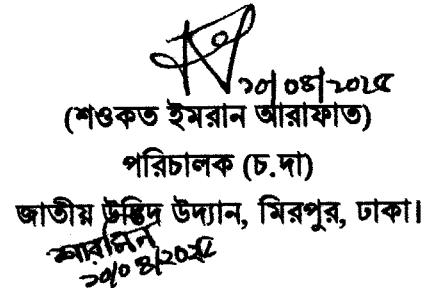 ২০/০৪/২০২৫
(শওকত ইমরান আরাফাত)
পরিচালক (চ.দা)
জাতীয় উদ্ভিদ উদ্যান, মিরপুর, ঢাকা।
শারমিন
২০/০৪/২০২৫